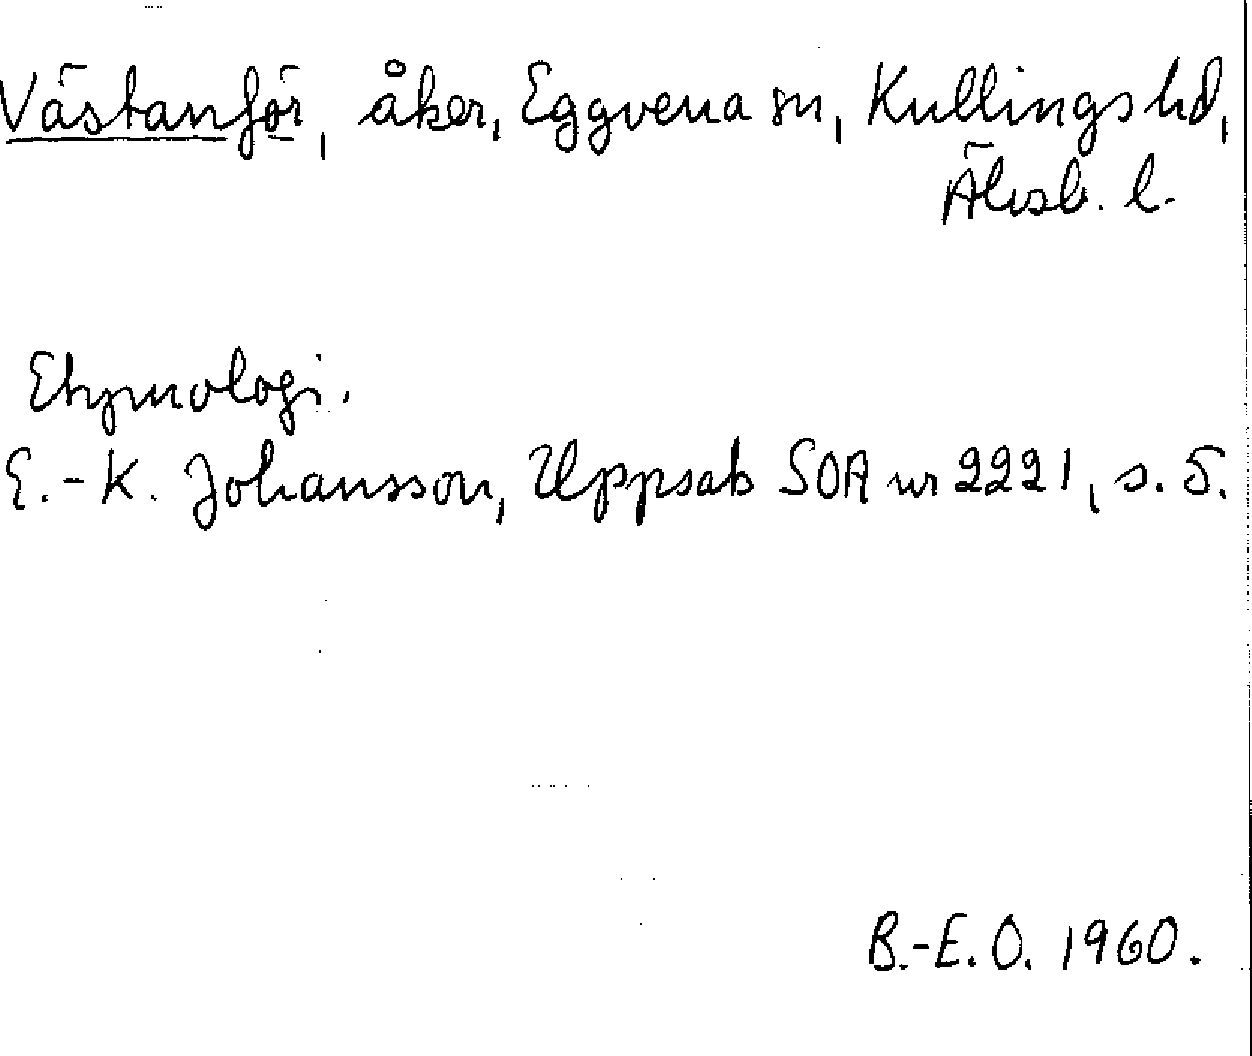 Västanför, åker, Eggvena sn, Kullings hd,
Älvsb. l.
Etymologi.
E.-K. Johansson, Uppsats SOA nr 2221, s. 5.
B.-E. O. 1960.